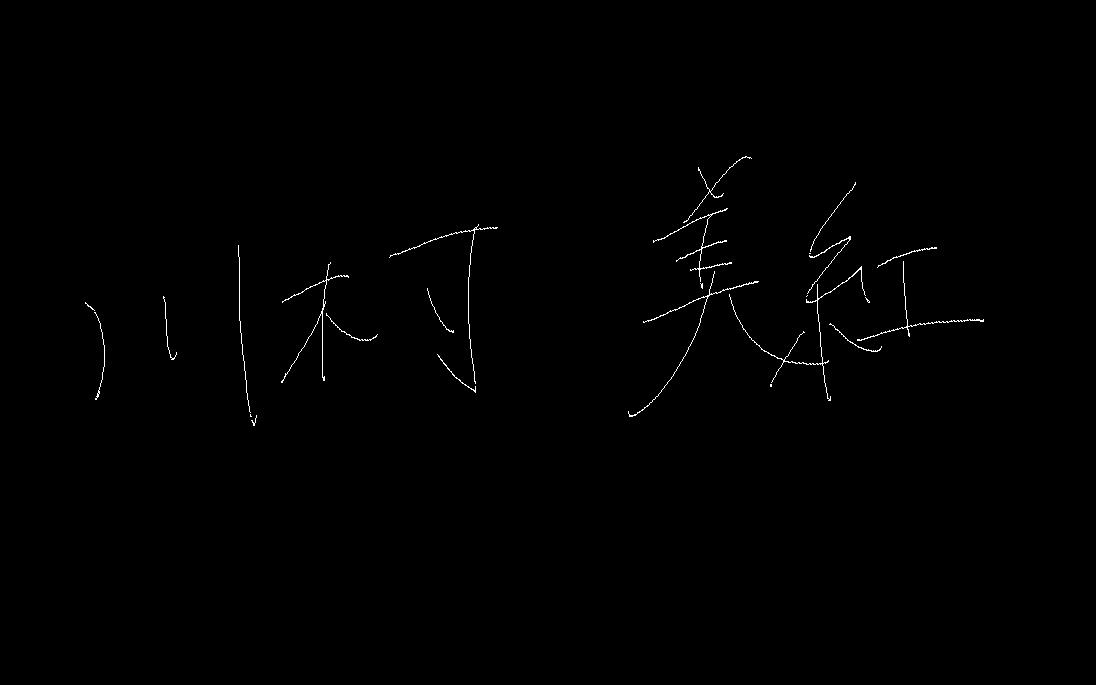 川村 美紅